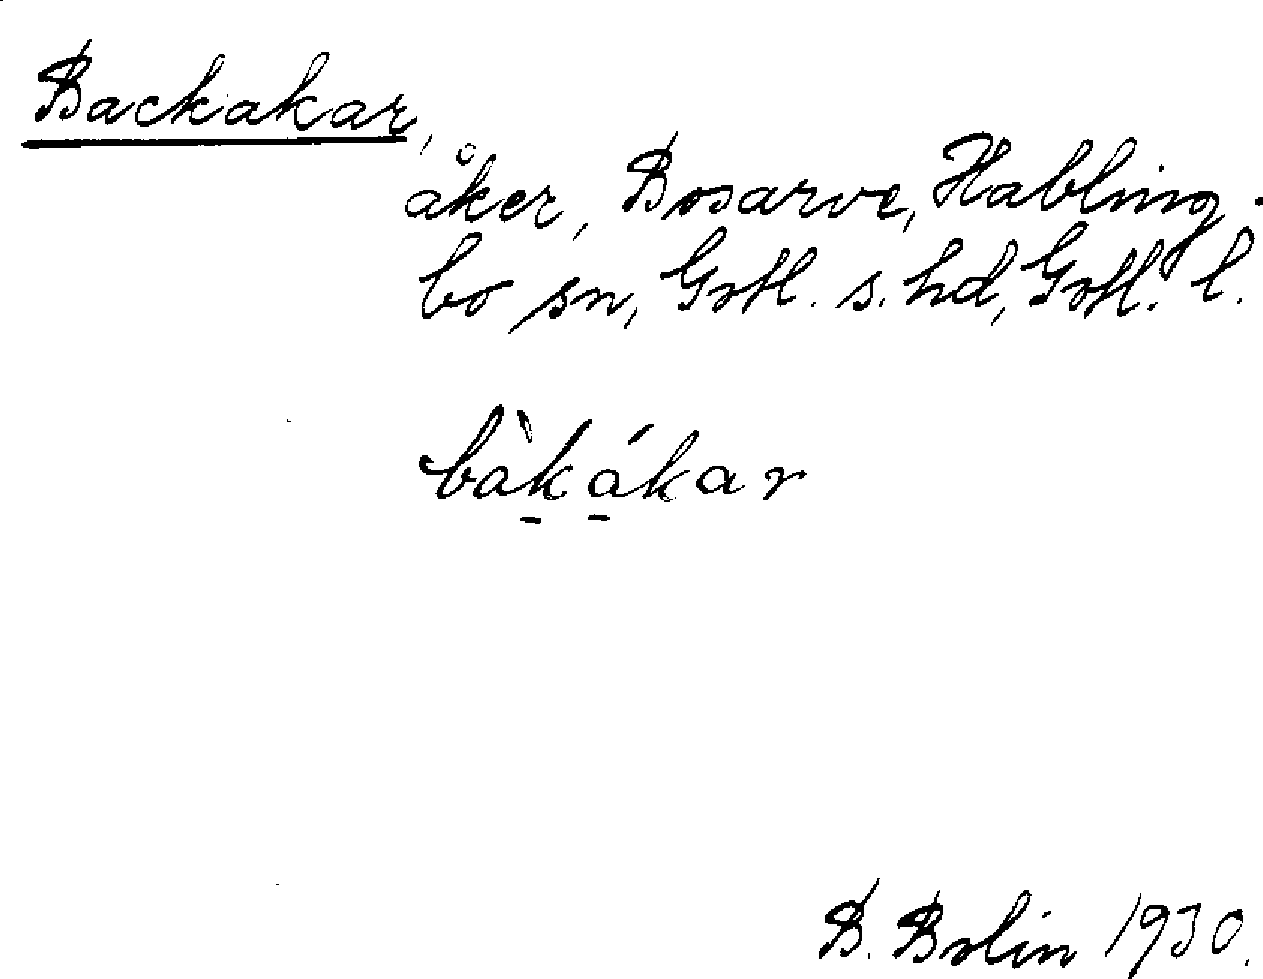 Backakar,
åker, Bosarve, Habling-
bo sn, Gotl. s. hd, Gotl. l.
bàk̠á̠kar
B. Bolin 1930.